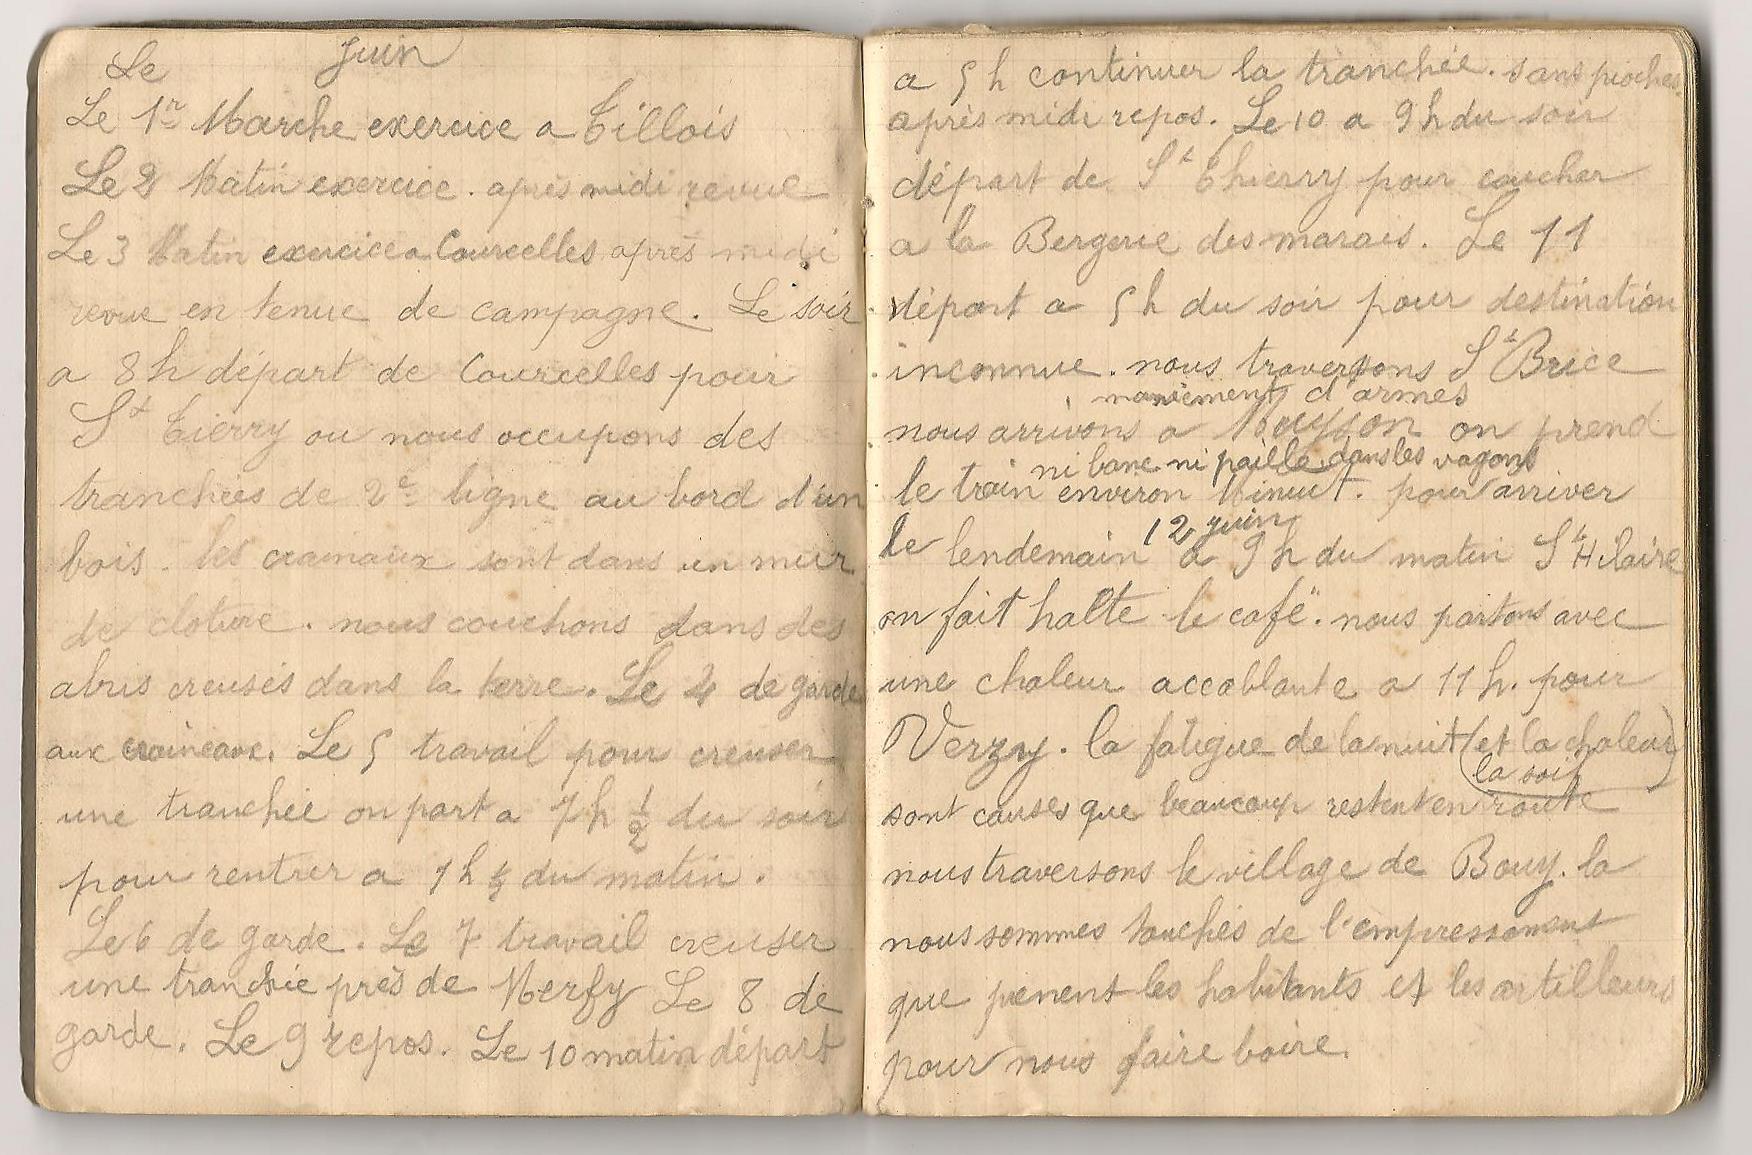 Le Juin
Le 1er Marche exercice a Tillois
Le 2 Matin exercice. après midi revue
Le 3 Matin exercice a Courcelles après midi
revue en tenue de campagne. Le soir
a 8h départ de Courcelles pour
St Tierry ou nous occupons des
tranchées de 2e ligne au bord d'un
bois. les crainaux sont dans un mur
de cloture. nous couchons dans des
abris creusés dans la terre. Le 4 de garde
aux craineaux. Le 5 travail pour creuser
une tranchée on part a 7h 1/2 du soir
pour rentrer a 1h 1/2 du matin.
Le 6 de garde. Le 7 travail creuser
une tranchée près de Merfy Le 8 de
garde. Le 9 repos. Le 10 matin départ
a 5h continuer la tranchée. sans pioches.
après midi repos. Le 10 a 9h du soir
départ de St Thierry pour coucher
a la Bergerie des marais. Le 11
départ a 5h du soir pour destination
inconnue. nous traversons St Brice
maniement d'armes
nous arrivons a on prend
ni banc ni paille dans les vagons
le train environ Minuit. pour arriver
12 juin
le lendemain a 9h du matin St Hilaire
on fait halte le café. nous partons avec
une chaleur accablante a 11h. pour
Verzy. la fatigue de la nuit (et la chaleur)
la soif
sont causes que beaucoup restent en route
nous traversons le village de Bouy. la
nous sommes touchés de l'empressement
que prenent les habitants et les artilleurs
pour nous faire boire.